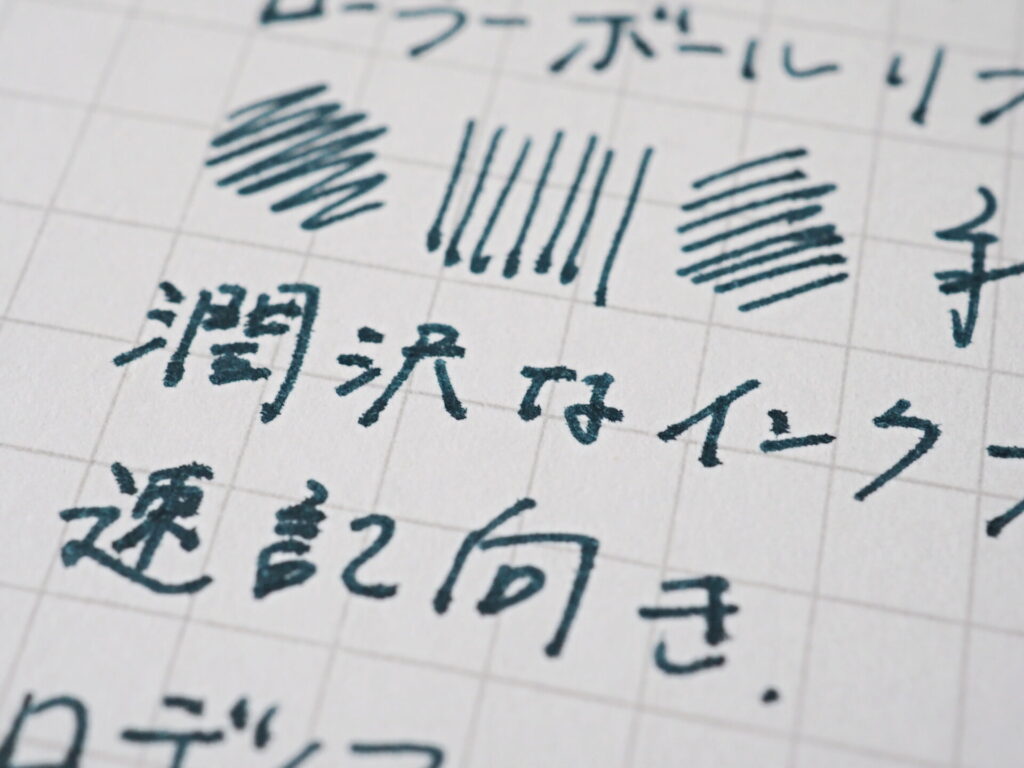 ローラーボール リフ
手
潤沢なインク
速記向き.
ロディア